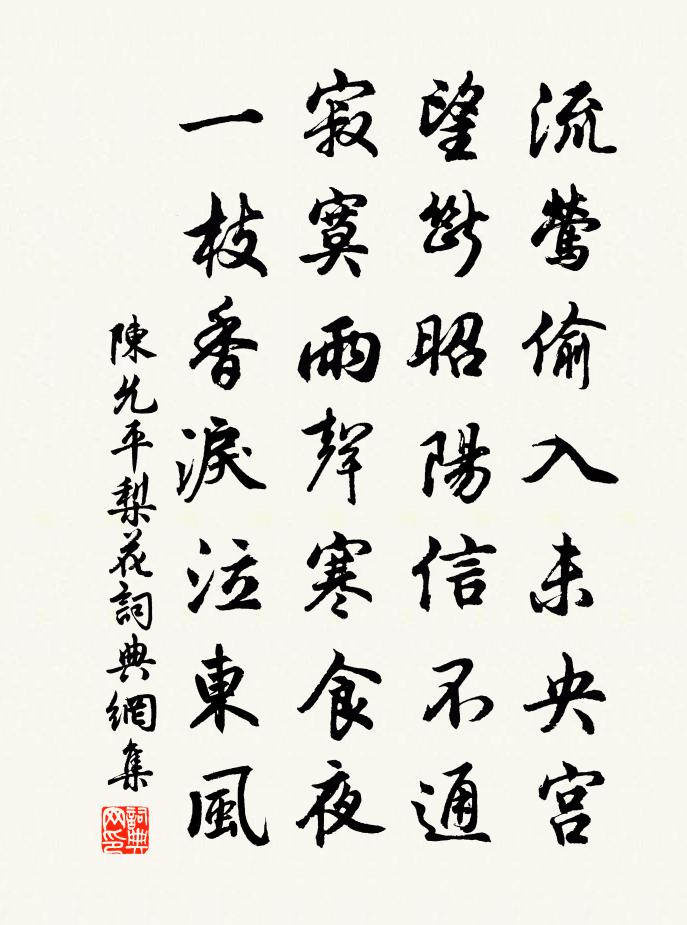 流鶯偷入未央宮
望斷昭陽信不通
寂寞雨聲寒食夜
一枝香淚泣東風
陳允平梨花詞典網集
詞典
网印